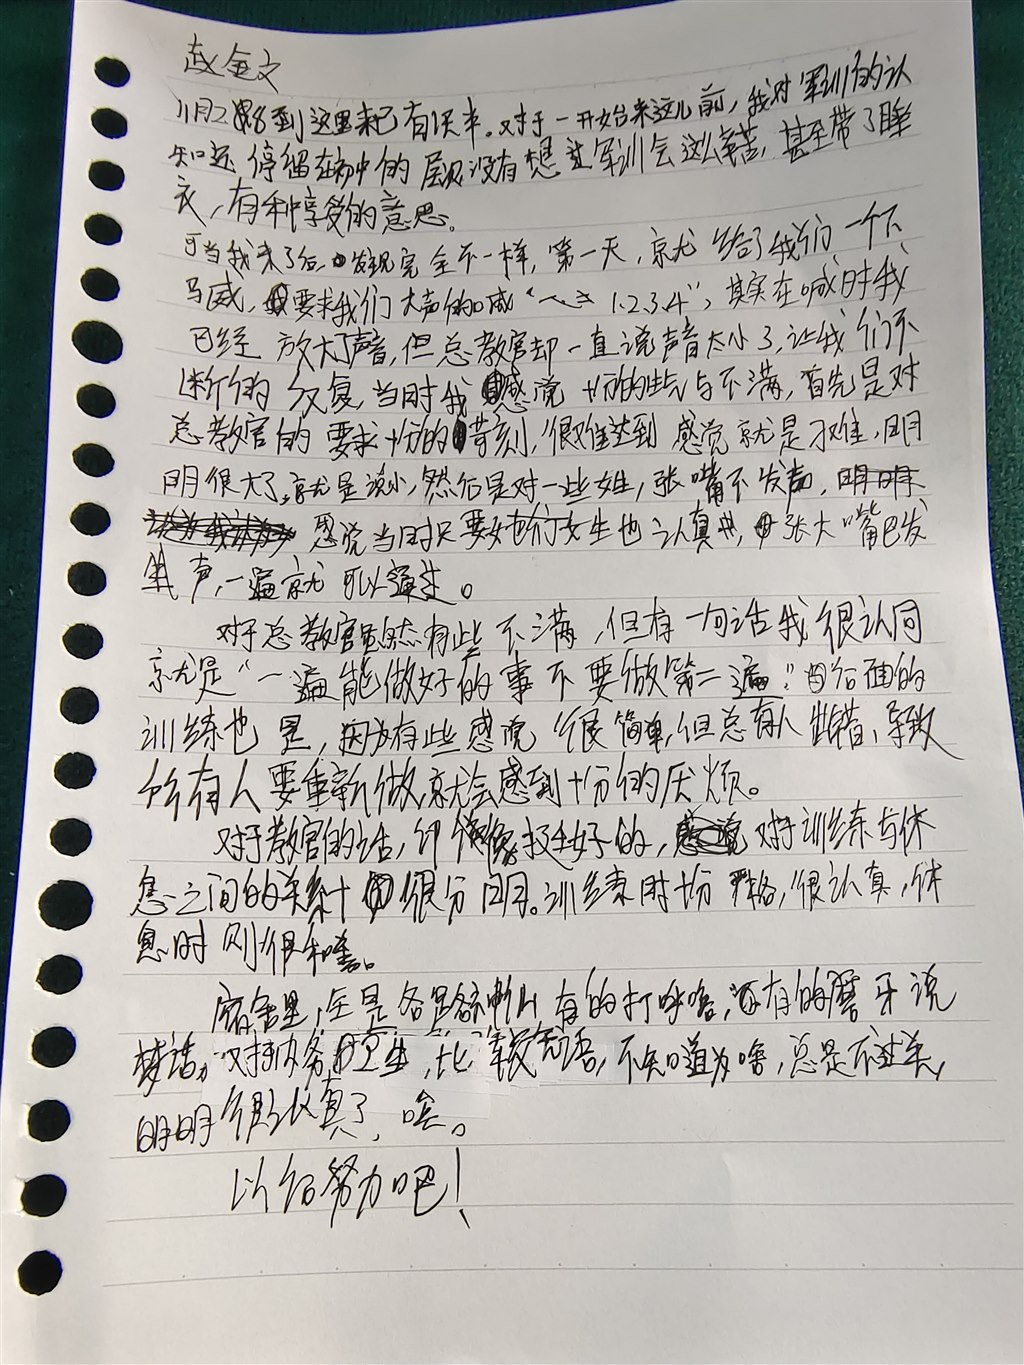 赵金文
11月28到这里来已有1天半。对于一开始来这儿前，我对军训的认
知还停留在初中的层次没有想过军训会这么辛苦，甚至带了睡
衣，有种享受的意思。
可当我来了后，发现完全不一样，第一天，就给了我们一个下
马威，要求我们大声的喊“一二三 1.2.3.4”，其实在喊时我
已经放大声音，但总教官却一直说声音太小了，让我们不
断的反复，当时我感觉十份的生气与不满，首先是对
总教官的要求十份的苛刻，很难达到感觉就是刁难，明
明很大了，就是说小，然后是对一些女生，张嘴不发声，明明
感觉当时只要她们女生也认真些，张大嘴巴发
声，一遍就可以通过。
对于总教官虽然有些不满，但有一句话我很认同
就是“一遍能做好的事不要做第二遍”。后面的
训练也是，因为有些感觉很简单，但总有人出错，导致
所有人要重新做，就会感到十份的厌烦。
对于教官的话，印象挺好的，对于训练与休
息之间的关系十很分明。训练时十份严格，很认真，休
息时则很和善。
宿舍里，全是有的打呼噜，还有的磨牙说
梦话。对于内务卫生，比较无语，不知道为啥，总是不过关，
明明很认真了，唉。
以后努力吧！